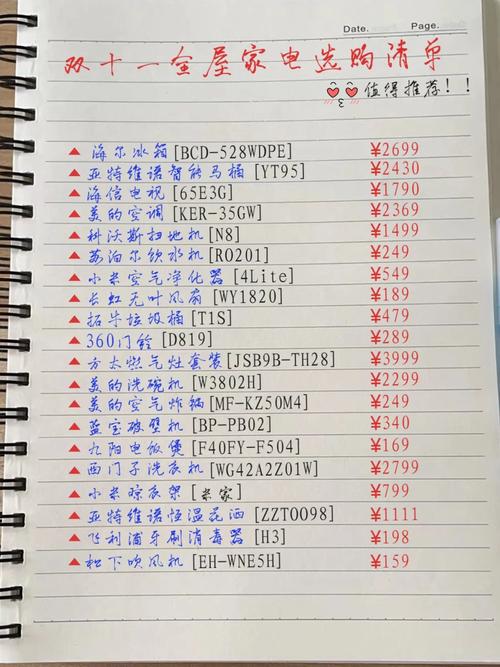 Date. Page.
双十一全屋家电选购清单
值得推荐!!
▲ 海尔冰箱[BCD-528WDPE] ¥2699
▲ 亚特维诺智能马桶[YT95] ¥2430
▲ 海信电视[65E3G] ¥1790
▲ 美的空调[KER-35GW] ¥2369
▲ 科沃斯扫地机[N8] ¥1499
▲ 苏泊尔饮水机[RO201] ¥249
▲ 小米空气净化器[4Lite] ¥549
▲ 长虹无叶风扇[WY1820] ¥189
▲ 拓牛垃圾桶[T1S] ¥479
▲ 360门铃[D819] ¥289
▲ 方太燃气灶套装[JSB9B-TH28] ¥3999
▲ 美的洗碗机[W3802H] ¥2299
▲ 美的空气炸锅[MF-KZ50M4] ¥249
▲ 蓝宝破壁机[BP-PB02] ¥340
▲ 九阳电饭煲[F40FY-F504] ¥169
▲ 西门子洗衣机[WG42A2Z01W] ¥2799
▲ 小米晾衣架[米家] ¥799
▲ 亚特维诺恒温花洒[ZZT0098] ¥1111
▲ 飞利浦牙刷消毒器[H3] ¥198
▲ 松下吹风机[EH-WNE5H] ¥159